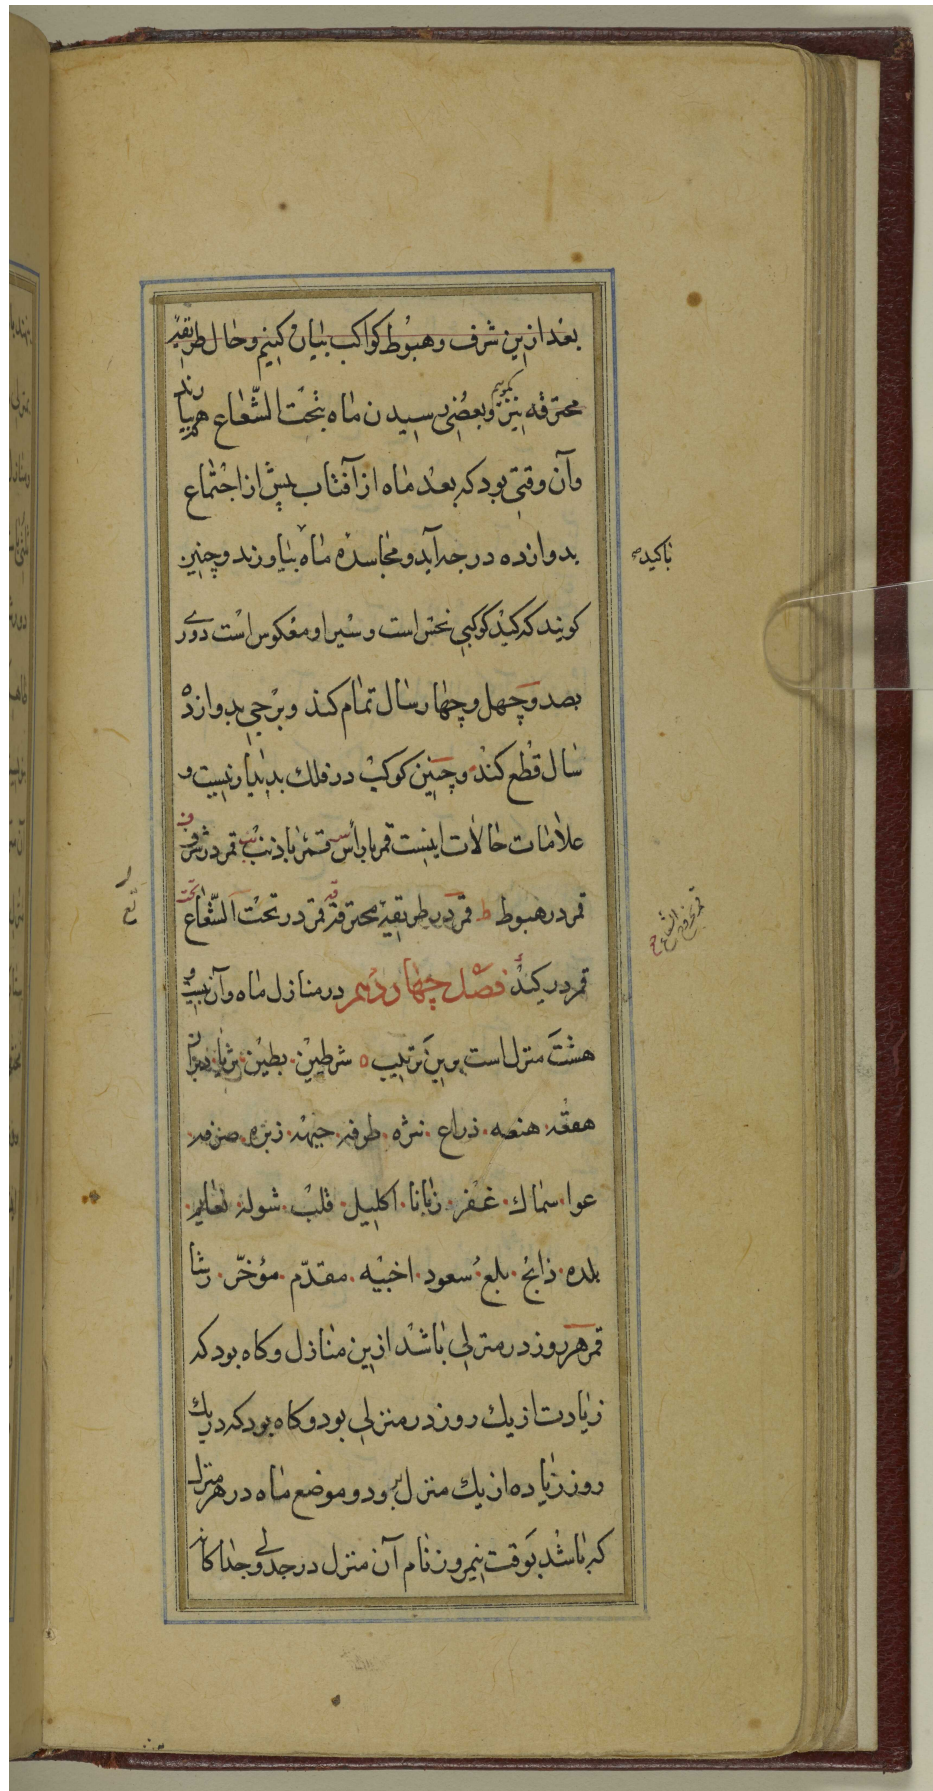 بعد ازین شرف و هبوط کواکب بیان کنیم و حال طریقهٔ
محترقه نیز بگوییم و بعضی رسیدن ماه بتحت الشعاع هم بیارند
و آن وقتی بود که بعد ماه از آفتاب پیش از اجتماع
بدوازده درجه آید و مجاسده ماه بیاورند و چنین
با کید
کویند که کید کوکبی نحس است و سیر او معکوس است دوری
بصد و چهل و چهار سال تمام کند و برجی بدوازده
سال قطع کند و چنین کوکب در فلک پدیدار نیست و
علامات حالات اینست قمر با رأس س قمر با ذنب نب قمر در شرف ف
قمر در هبوط ط قمر در طریقهٔ محترقه قه قمر در تحت الشعاع تحت
قمر در کید فصل چهاردهم در منازل ماه و آن بیست و
هشت منزل است برین ترتیب ٥ شرطین بطین ثریا دبران
هقعه هنعه ذراع نثره طرفه جبهه زبره صرفه
عوا سماک غفر زبانا اکلیل قلب شوله نعایم
بلده ذابح بلع سعود اخبیه مقدّم مؤخّر رشا
قمر هر روز در منزلی باشد ازین منازل و کاه بود که
زیادت از یک روز در منزلی بود و کاه بود که در یک
روز زیاده از یک منزل برود و موضع ماه در هر منزل
که باشد بوقت نیمروز نام آن منزل در جدولی جداکانه